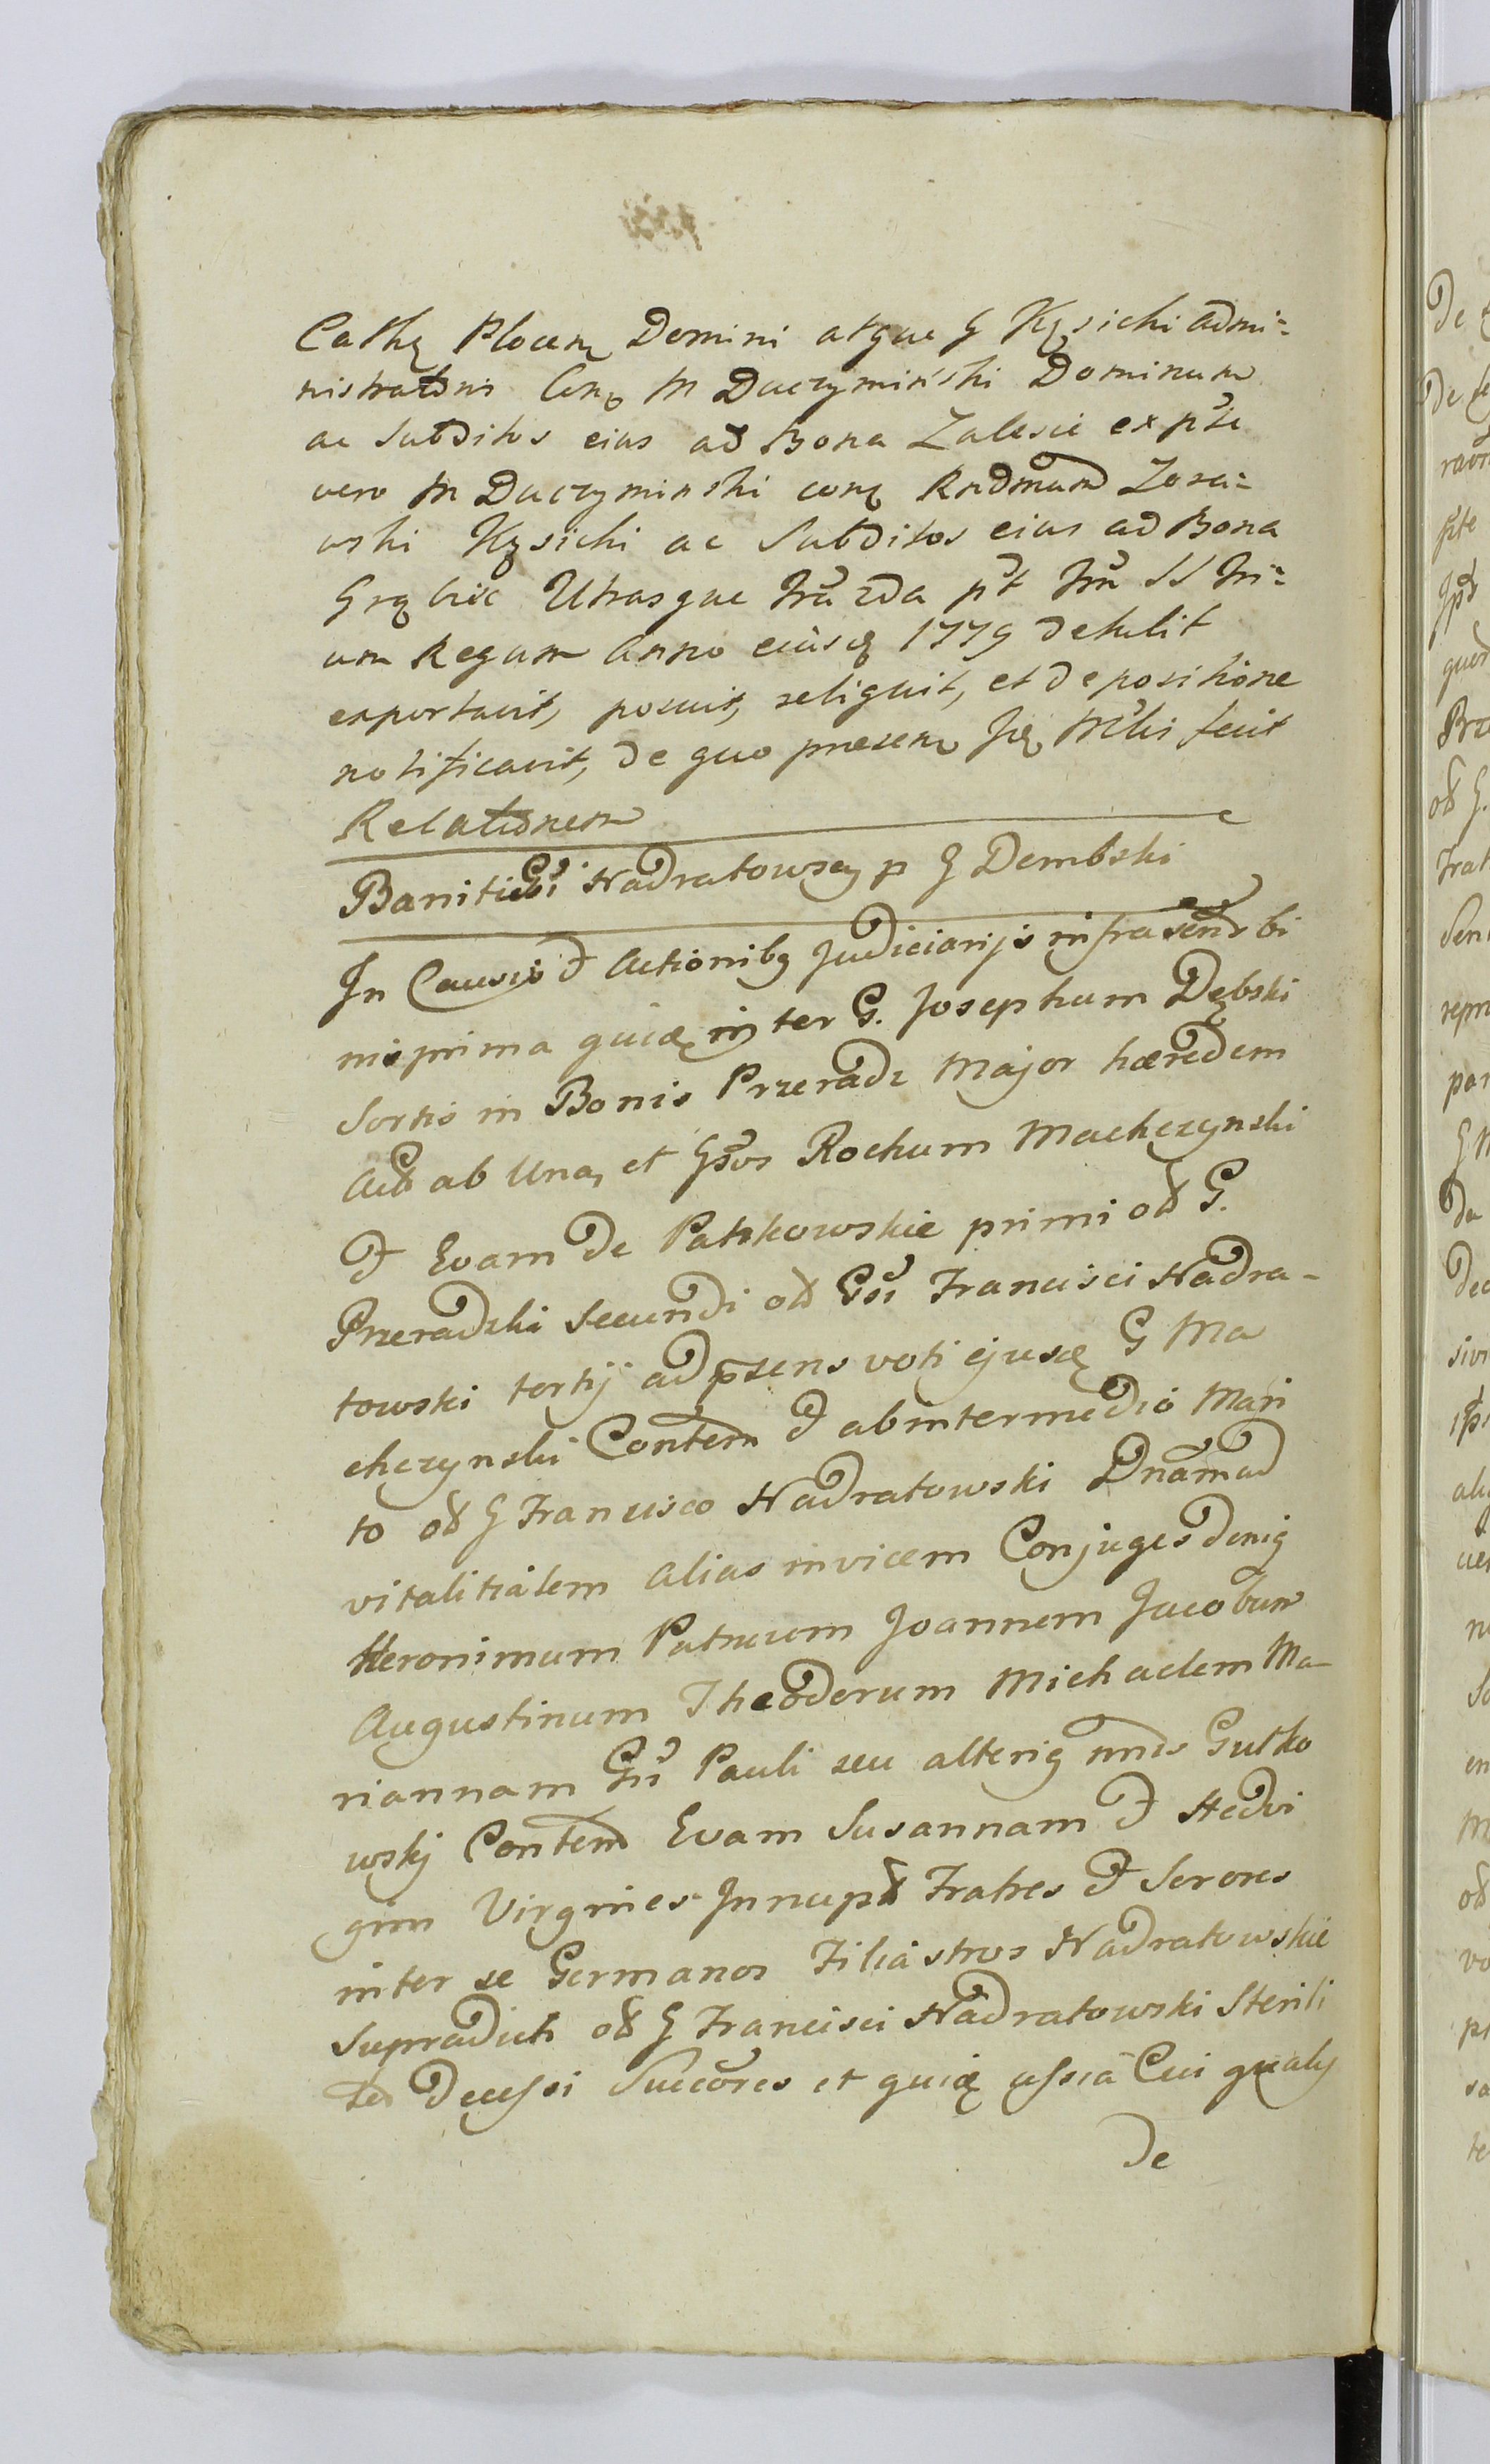 Cathę Plocen Domini atque G Kęsicki admi=
nistratoris Conę M Duczymiński Dominum
ac Subditos eius ad Bona Zalesie ex pte
vero M Duczyminski conę Rndmum Zora=
wski Kęsicki ac Subditos eius ad Bona
Grąbiec Utrasque fra 2da pt fm SS Tri=
um Regum Anno eiusdę 1779 detulit
exportavit, posuit, reliquit, et de positione
notificavit, de quo praesens Ję Mths fecit
Relationem
Banitio Gsi Nadratowscy p G Dembski
In Causis et Actionibg Judiciarijs infrascr bi
nis prima quidę inter G. Josephum Dębski
Sortis in Bonis Przeradz Major hæredem
Act ab Una, et Gsos Rochum Machczynski
et Evam de Patrkowskie primi od G.
Przeradzki Secundi od Gsi Francisci Nadra-
towski tertij ad psens voti ejusdę G Ma
chczynski Contem et ab intermedio Mari
to od G Francisco Nadratowski Dnam ad
vitalitialem alias invicem Conjuges deniq
Heronimum Patruum Joannem Jacobum
Augustinum Theodorum Michaelem Ma-
riannam Gsi Pauli seu alterig nnis Gutko
wskj Contem Evam Susannam et Hedvi
gim Virgines Innupt Fratres et Sorores
inter se Germanos Filiastros Nadratowskie
Supradicti od G Francisci Nadratowski Sterili
ter Decessi Succores et quidę assia Cui qualy
de